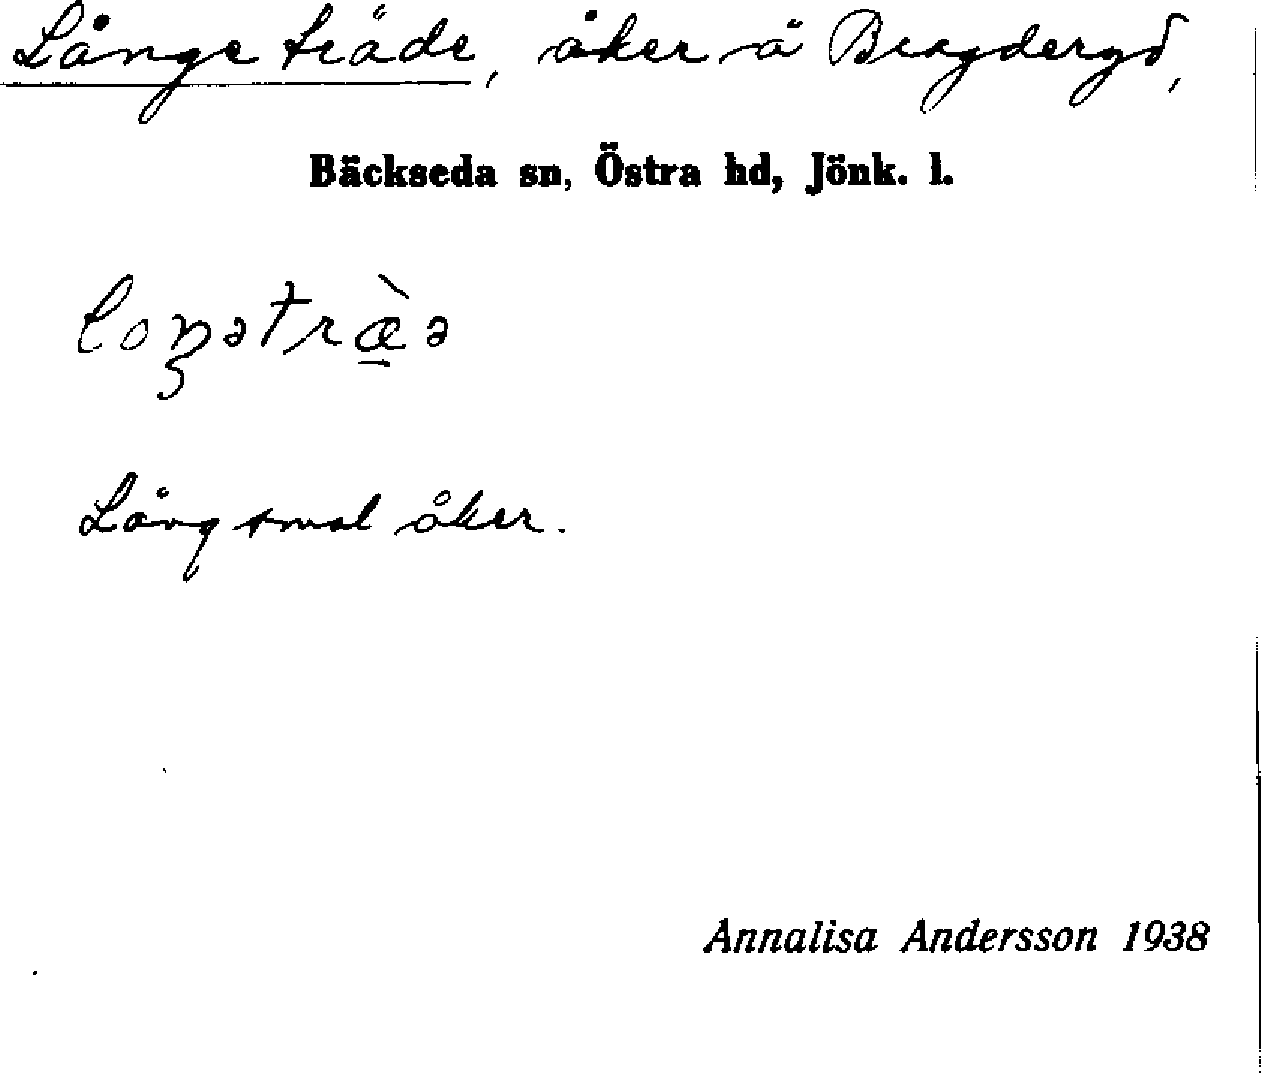 Långe träde, åker å Bragdergd,
Bäckseda sn, Östra hd, Jönk. l.
loŋətræ̱̀ə
Lång smal åker.
Annalisa Andersson 1938